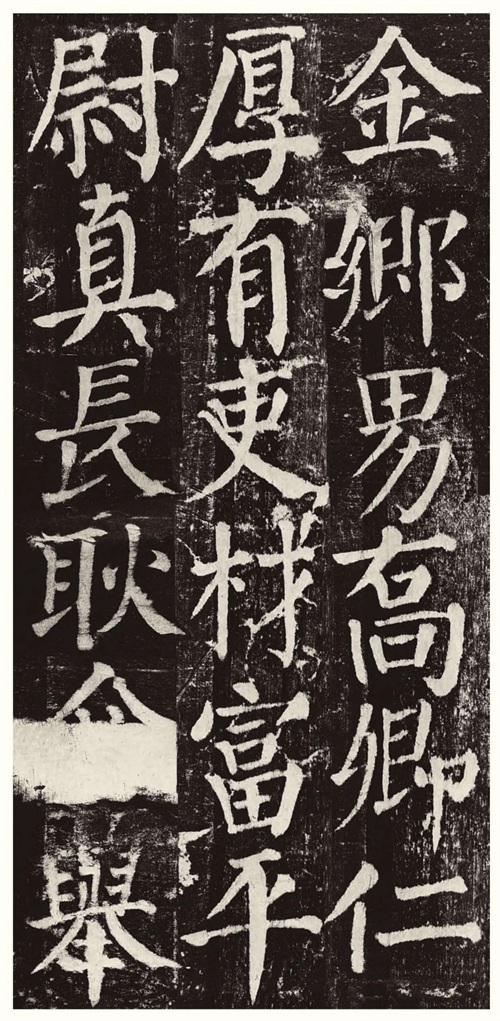 金鄉男喬卿仁
厚有吏材富平
尉真長耿介舉